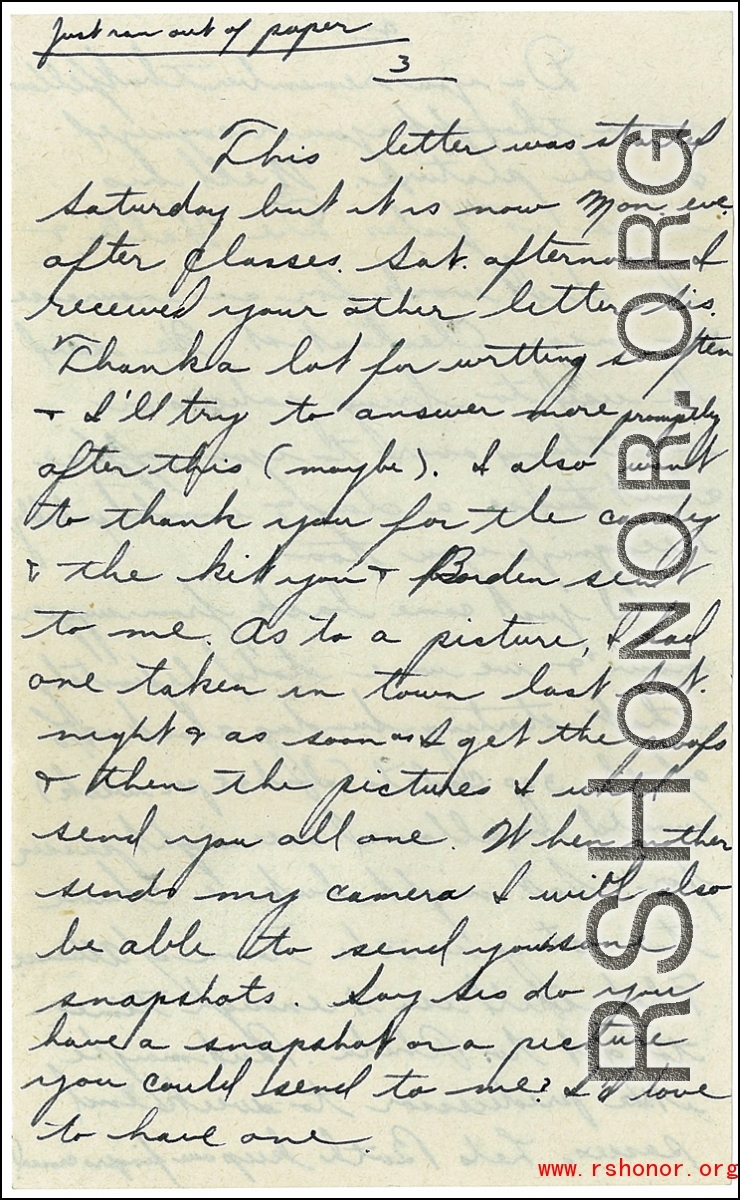 Just ran out of paper
3
This letter was started
Saturday but it is now Mon. eve
after classes. Sat. afternoon I
received your other letter Sis.
Thanks a lot for writting so often
+ I'll try to answer more promptly
after this (maybe). I also want
to thank you for the candy
& the kit you + Borden sent
to me. As to a picture, I had
one taken in town last Sat.
night & as soon as I get the proofs
& then the pictures I will
send you all one. When mother
sends my camera I will also
be able to send you some
snapshots. Say Sis do you
have a snapshot or a picture
you could send to me? I'd love
to have one.
RSHONOR.ORG
www.rshonor.org